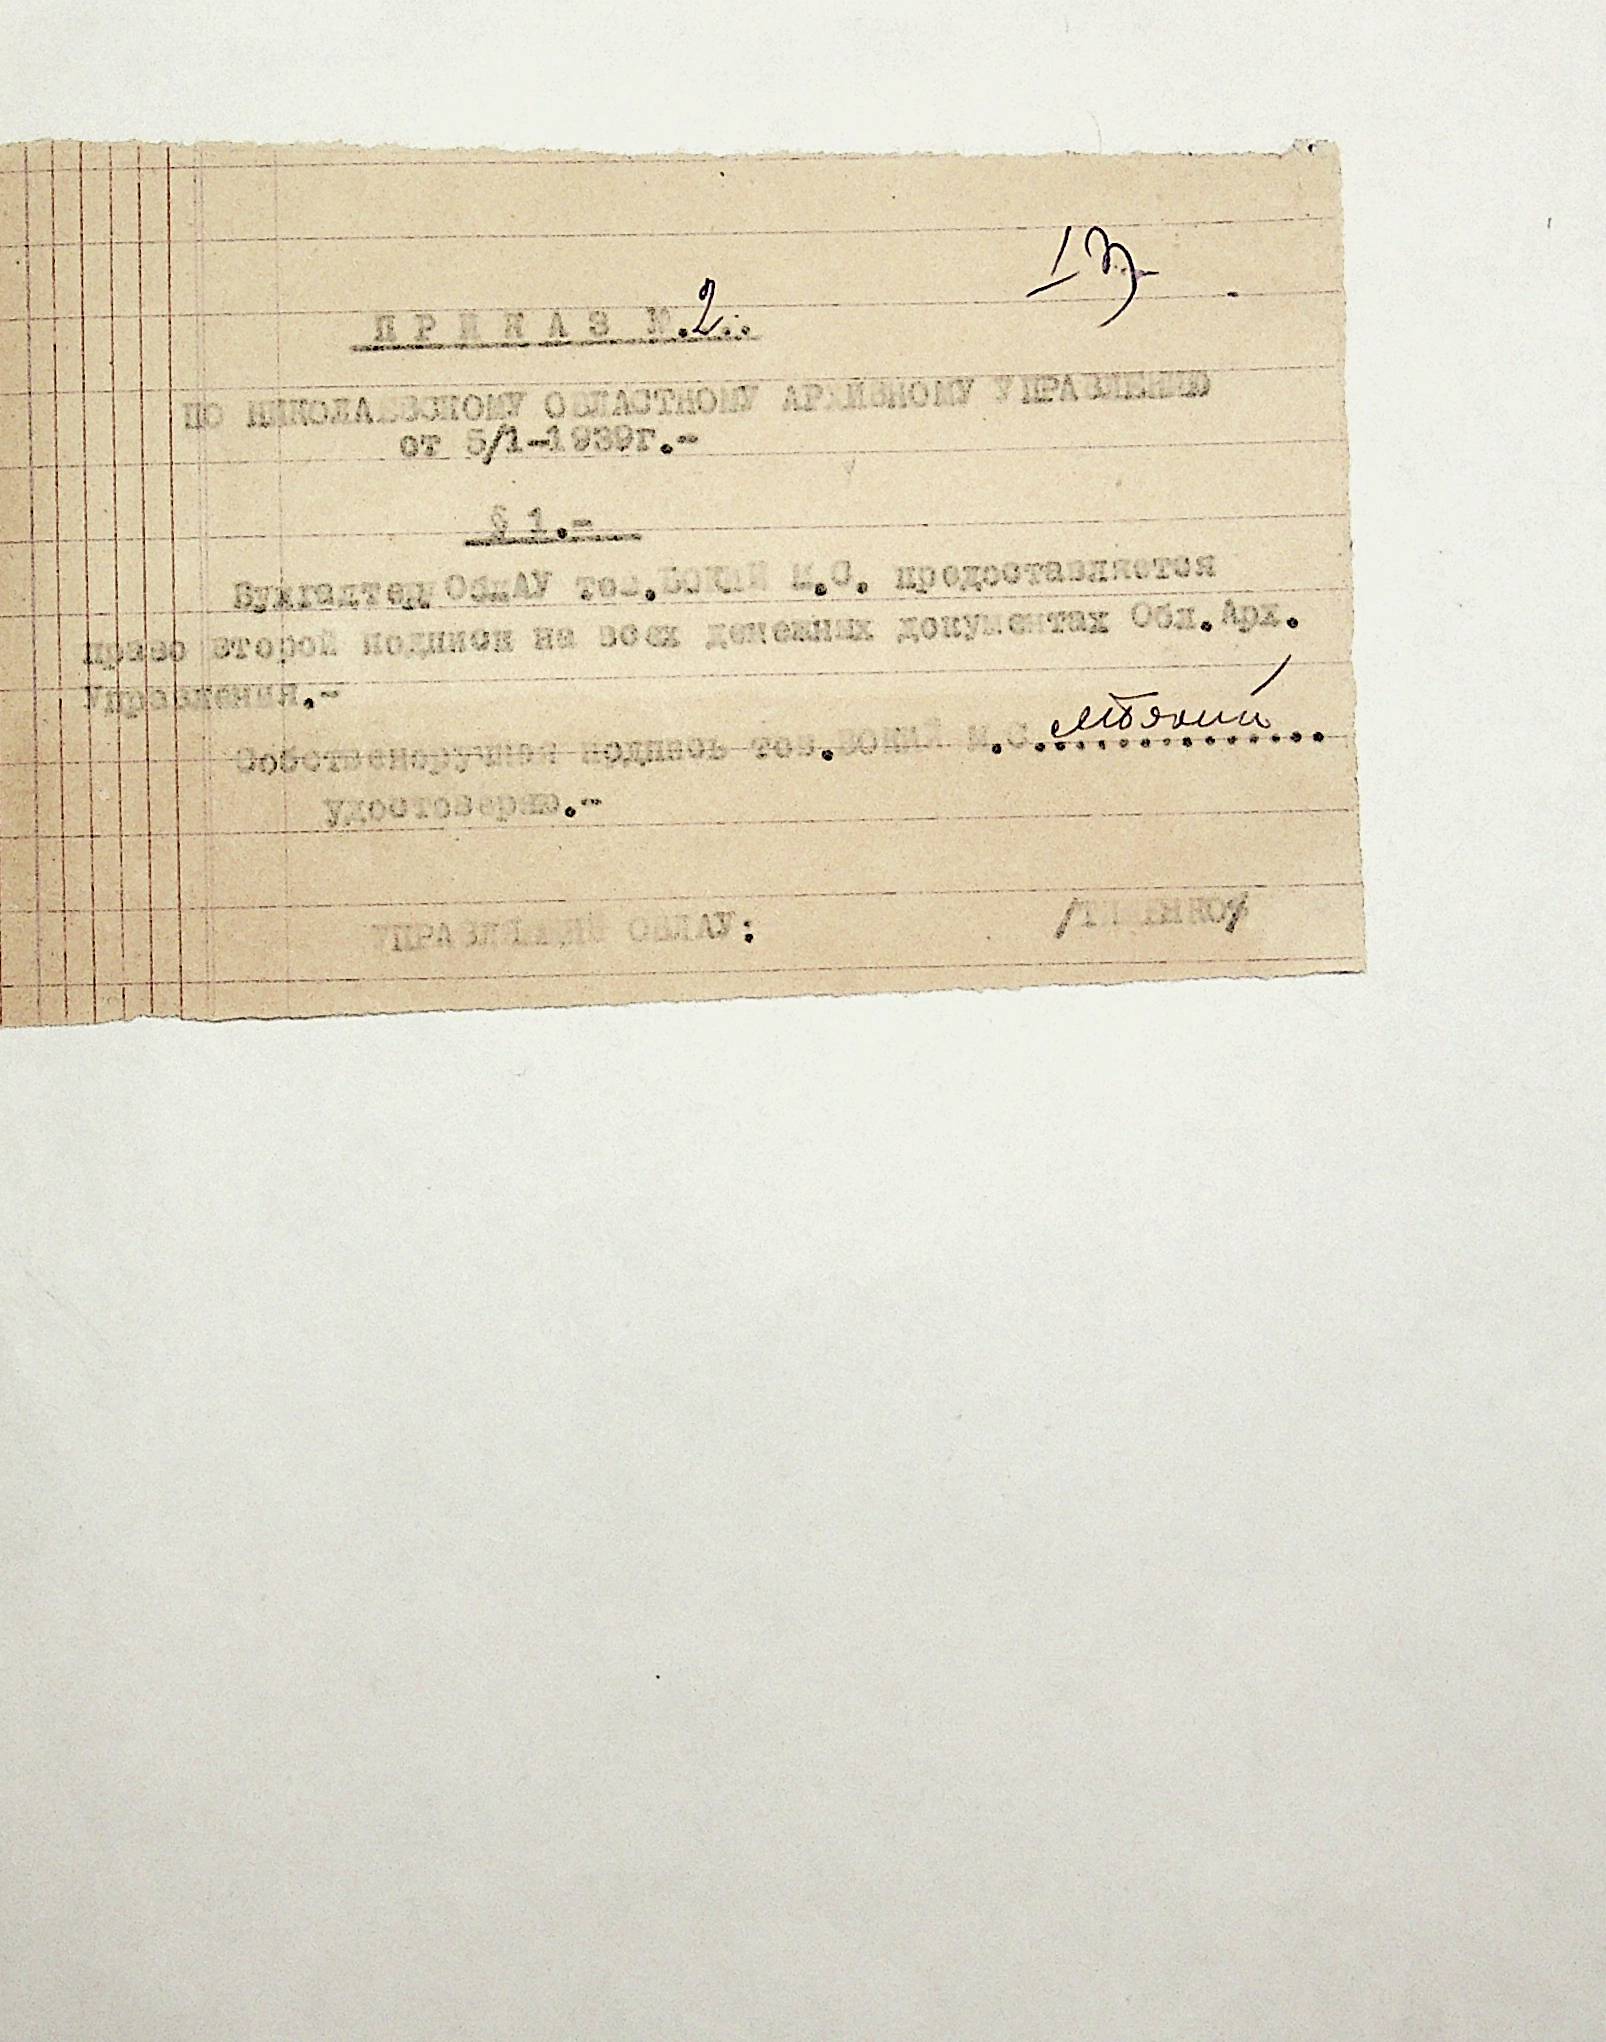 П Р И К А З №.2..
ПО НИКОЛАЕВСКОМУ ОБЛАСТНОМУ АРХИВНОМУ УПРАВЛЕНИЮ
от 5/1-1939г.-
§ 1.-
Бухгалтеру ОблАУ тов.БОКИЙ М.С. предоставляется
право второй подписи на всех денежных документах Обл.Арх.
Управления.-
Собственоручная подпись тов.БОКИЙ М.С. МБокий
удостоверяю.-
УПРАВЛЯЮЩИЙ ОБЛАУ: